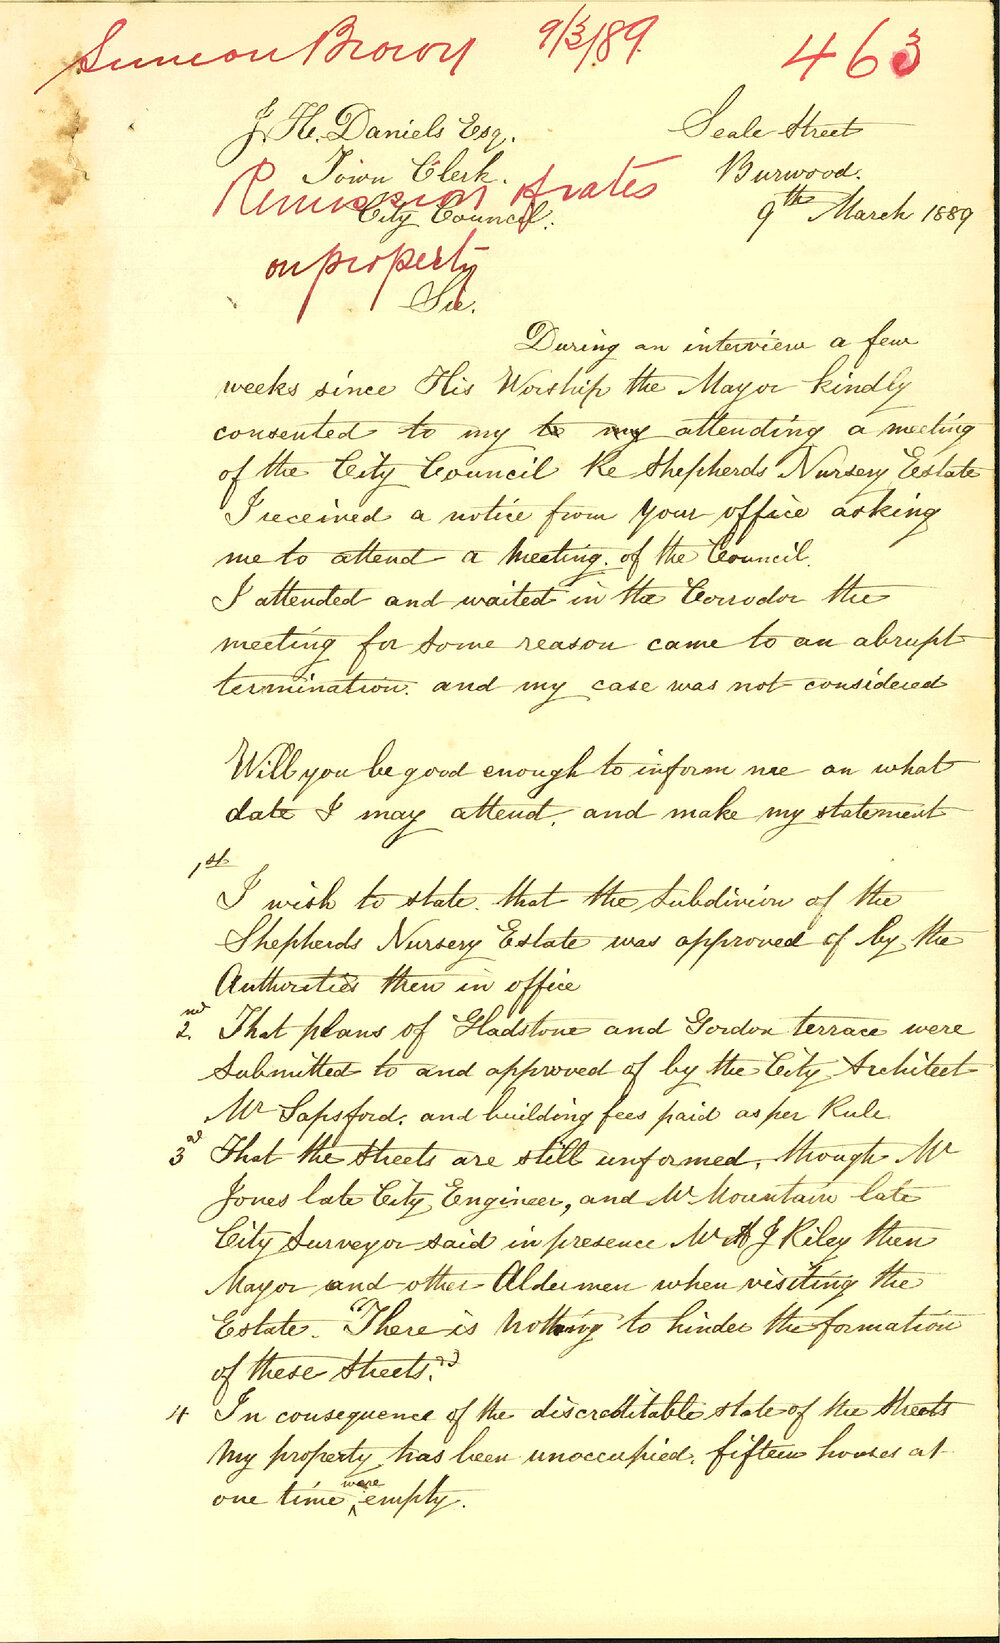 Simeon Brown 9/3/89 463
J. H. Daniels Esq. Seale Street
Town Clerk. Burwood.
City Council. 9th March 1889
Remission of rates
on property
Sir.
During an interview a few
weeks since His Worship the Mayor kindly
consented to my to my attending a meeting
of the City Council Re Shepherds Nursery Estate
I received a notice from your office asking
me to attend a Meeting. of the Council.
I attended and waited in the Corrodor the
meeting for some reason came to an abrupt
termination. and my case was not considered
Will you be good enough to inform me on what
date I may attend. and make my statement
1st
I wish to state. that the subdivion of the
Shepherds Nursery Estate was approved of by the
Authorities then in office
2nd. That plans of Gladstone and Gordon terrace were
submitted to and approved of by the City Architect
Mr Sapsford. and building fees paid as per Rule
3rd That the streets are still unformed, though Mr
Jones late City Engineer, and Mr Mountain late
City Surveyor said in presence Mr A J Riley then
Mayor and other Aldermen when visiting the
Estate. "There is nothing to hinder the formation
of these streets."
4 In consequence of the discreditable state of the streets
my property has been unoccupied. fifteen houses at
one time were empty.